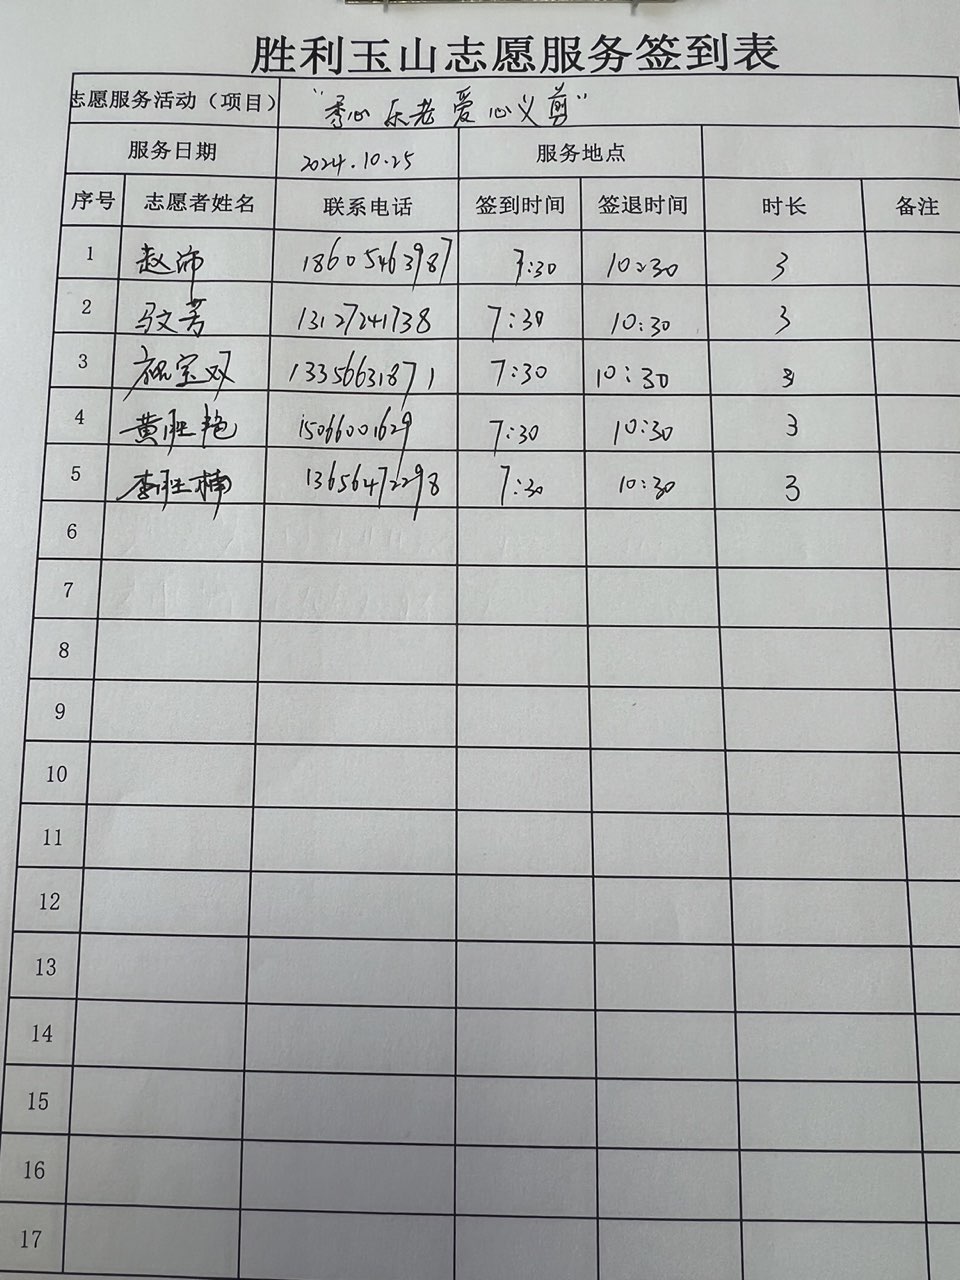 胜利玉山志愿服务签到表
志愿服务活动（项目） “秀心乐老 爱心义剪”
服务日期 2024.10.25 服务地点
序号 志愿者姓名 联系电话 签到时间 签退时间 时长 备注
1 赵沛 18605463987 7:30 10:30 3
2 马文芳 13127241738 7:30 10:30 3
3 祝宝双 13356631871 7:30 10:30 3
4 黄胜艳 15066001629 7:30 10:30 3
5 李胜楠 13656472298 7:30 10:30 3
6
7
8
9
10
11
12
13
14
15
16
17